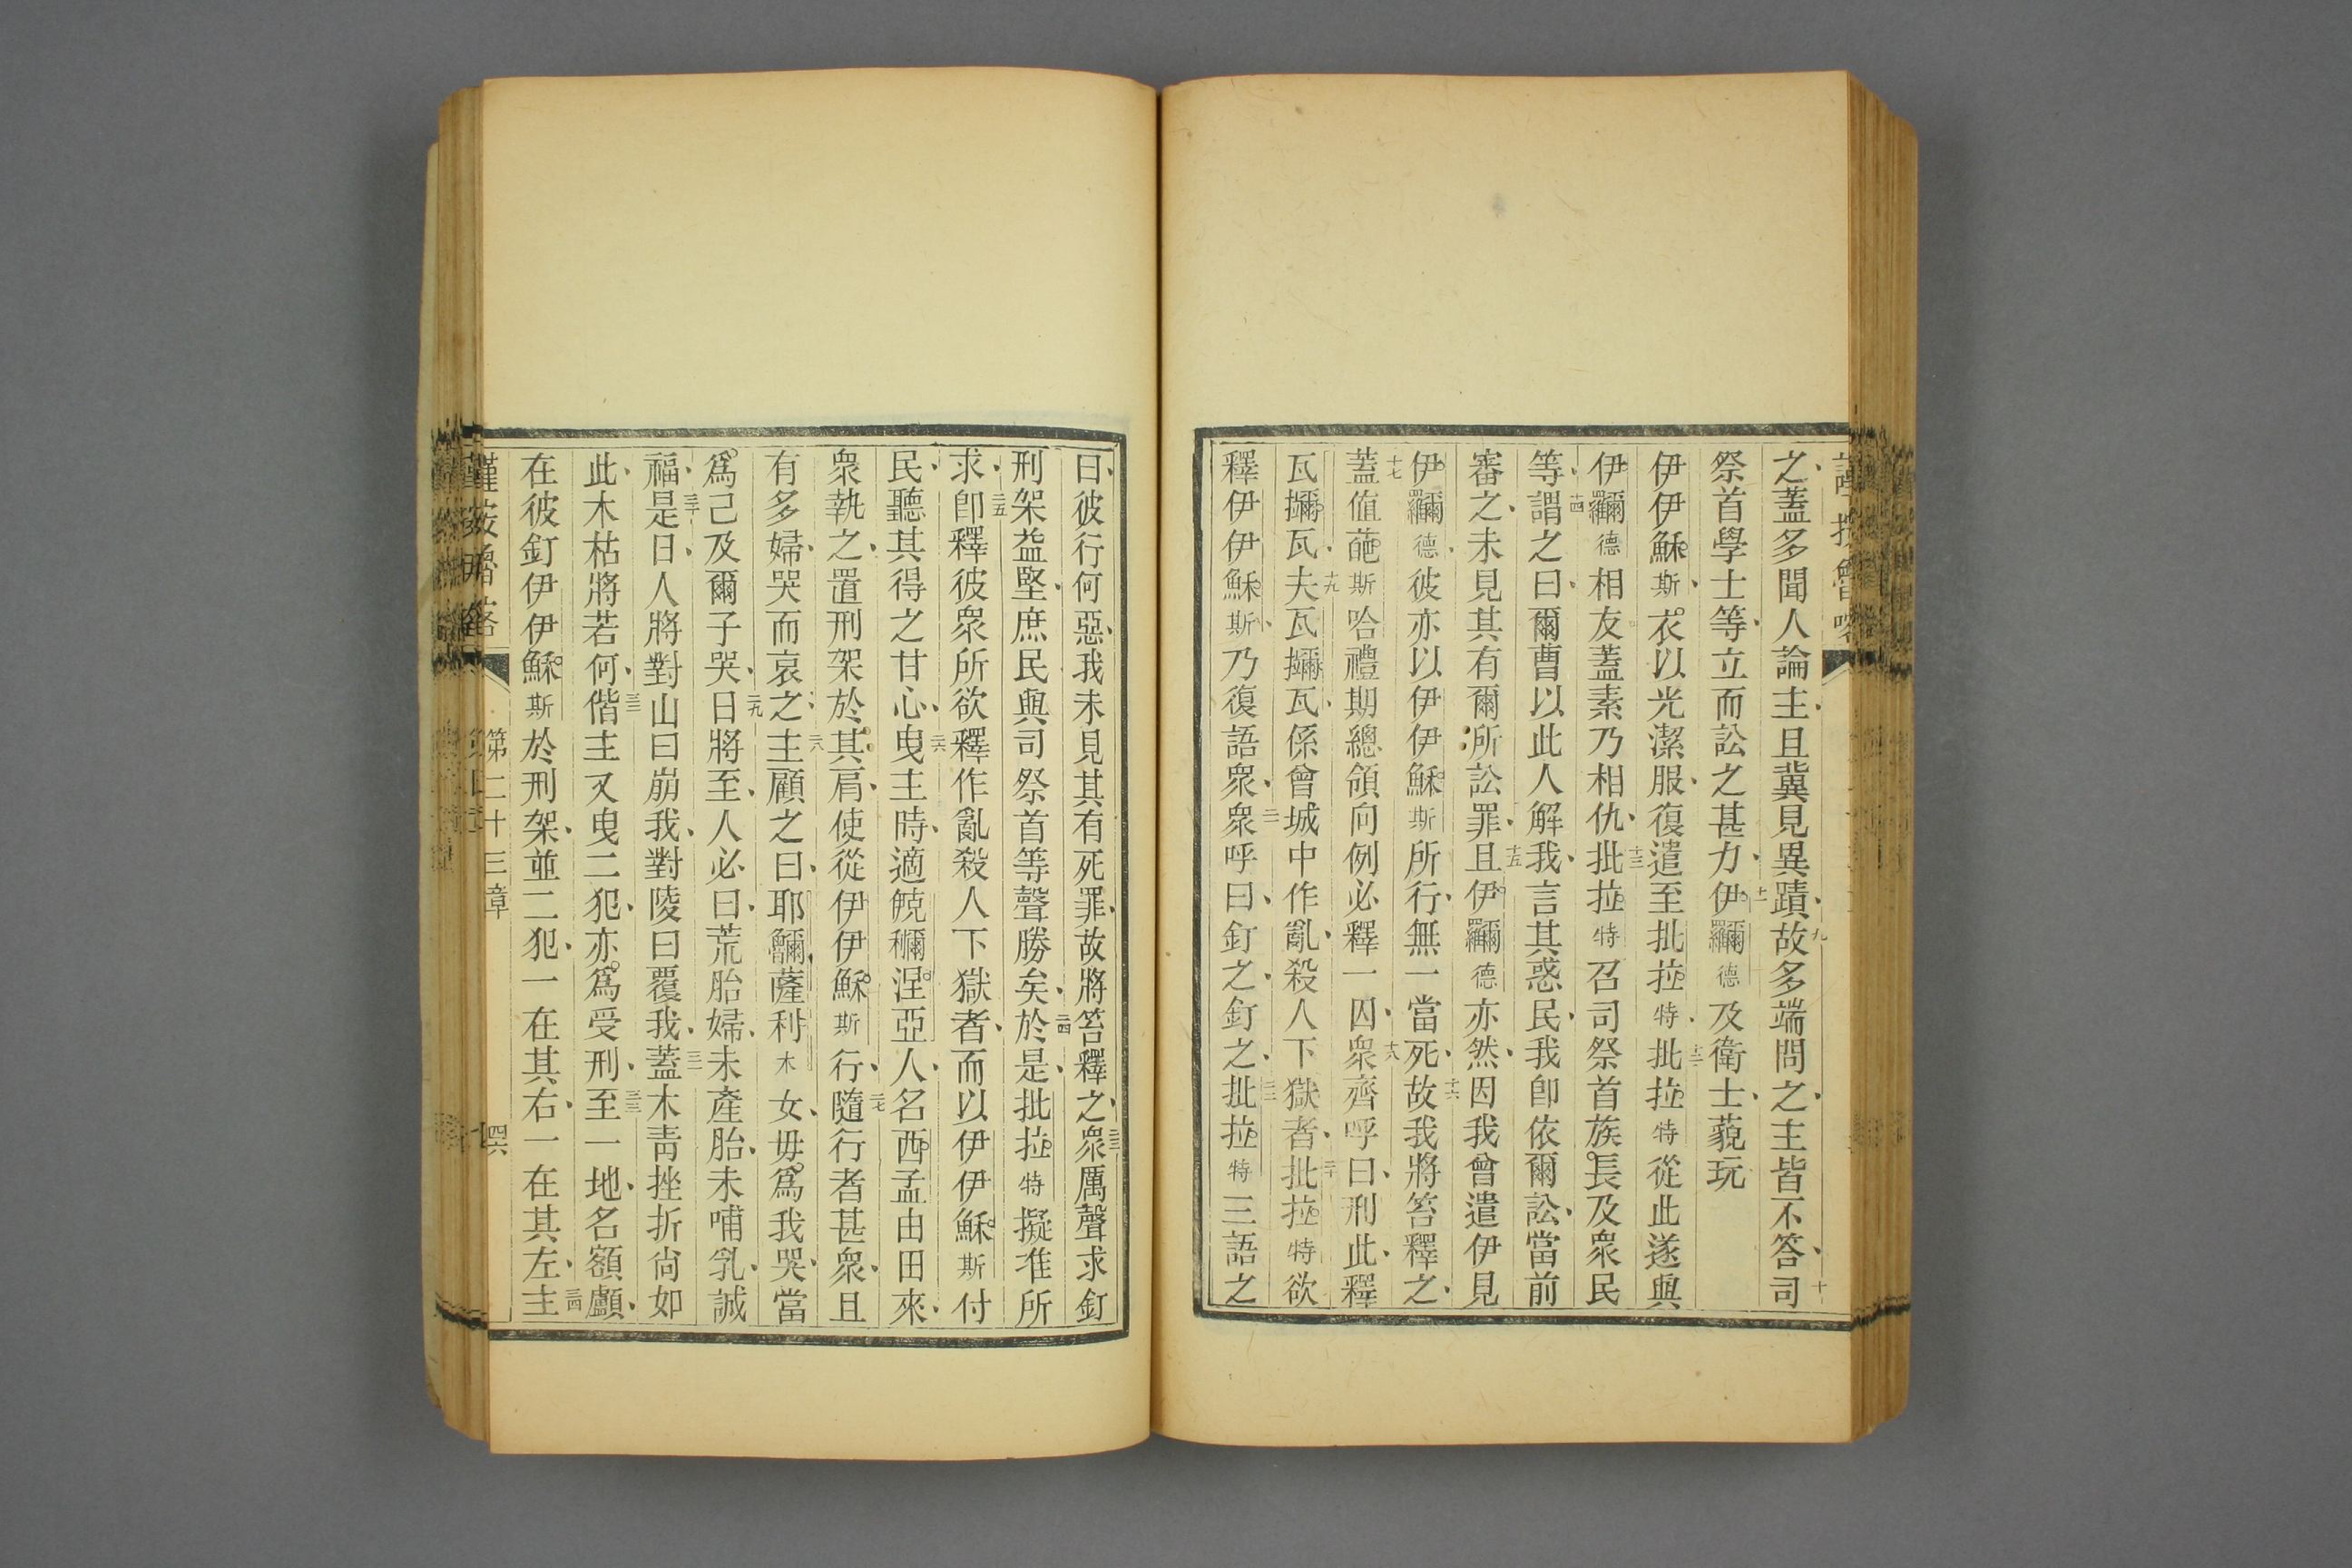 之、蓋多聞人論主、且冀見異蹟、九故多端問之、主皆不答、十司
祭首學士等、立而訟之甚力、十一伊。羅爾德及衛士、藐玩
伊伊穌。斯、衣。以光潔服、復遣至批拉。特、十二批拉。特從此遂與
伊。羅爾德相友、蓋素乃相仇、十三批拉。特召司祭首族。長及眾民
等、十四謂之曰、爾曹以此人解我、言其惑民、我卽依爾訟、當前
審之、未見其有爾所訟罪、十五且伊。羅爾德亦然、因我曾遣伊見
伊。羅爾德、彼亦以伊伊穌。斯所行、無一當死、十六故我將笞釋之、
十七蓋值葩。斯哈禮期總領向例必釋一囚、十八眾齊呼曰、刑此、釋
瓦喇。瓦、十九夫瓦喇瓦、係曾城中作亂、殺人下獄者、二十批拉。特欲
釋伊伊穌。斯、乃復語眾、二一眾呼曰、釘之、釘之、二二批拉。特三語之
曰、彼行何惡、我未見其有死罪、故將笞釋之、二三眾厲聲求釘
刑架益堅、庶民與司祭首等聲勝矣、二四於是、批拉。特擬准所
求、二五卽釋彼眾所欲釋作亂殺人下獄者、而以伊伊穌。斯付
民、聽其得之甘心、二六曳主時、適人、名西。孟由田來、
眾執之、置刑架於其肩、使從伊伊穌。斯行、二七隨行者甚眾、且
有多婦、哭而哀之、二八主顧之曰、耶薩利木女、毋。爲我哭、當
爲。己及爾子哭、二九日將至、人必曰、荒胎婦、未產胎、未哺乳、誠
福、三十是日、人將對山曰崩我、對陵曰覆我、三一蓋木靑挫折尙如
此、木枯將若何、三二偕主又曳二犯、亦。爲受刑、三三至一地、名額顱、
在彼釘伊伊穌。斯於刑架、並二犯、一在其右、一在其左、三四主
第二十三章
四六